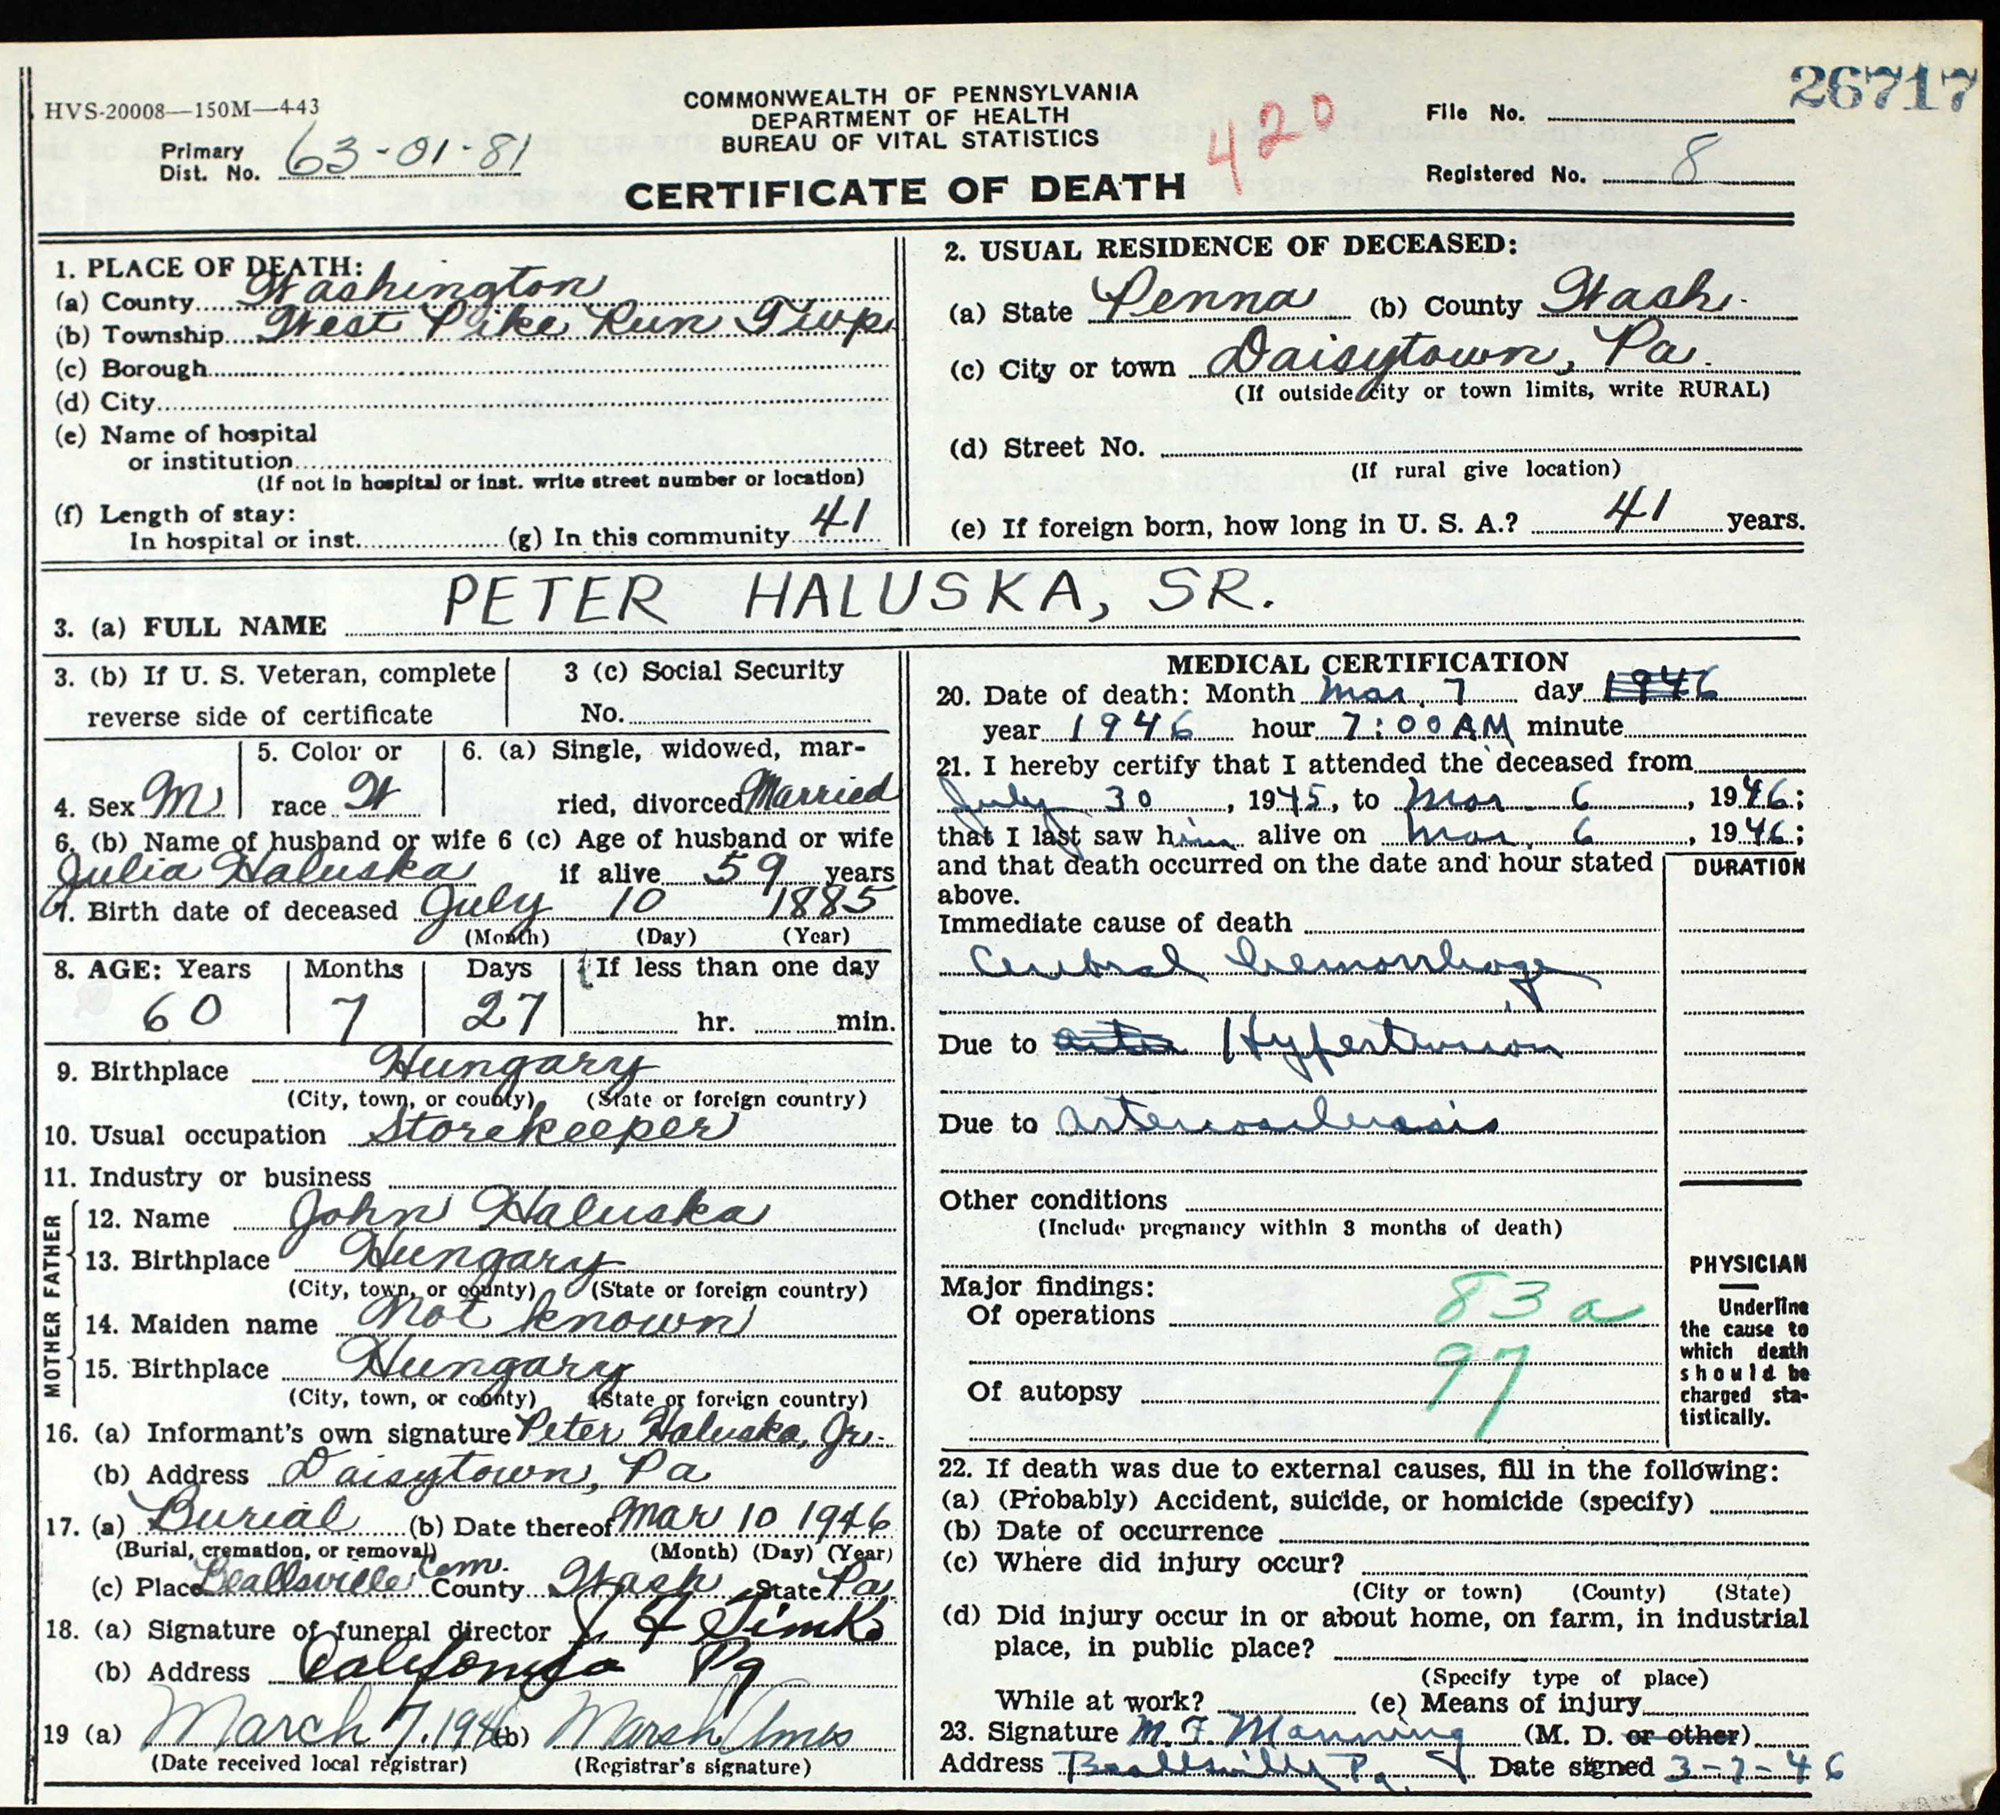 26717
HVS-20008—150M—4-43
COMMONWEALTH OF PENNSYLVANIA
DEPARTMENT OF HEALTH
BUREAU OF VITAL STATISTICS
CERTIFICATE OF DEATH
420
File No.
Primary
Dist. No. 63-01-81
Registered No. 8
1. PLACE OF DEATH:
(a) County Washington
(b) Township West Pike Run Twp.
(c) Borough
(d) City
(e) Name of hospital
or institution
(If not in hospital or inst. write street number or location)
(f) Length of stay:
In hospital or inst. (g) In this community 41
2. USUAL RESIDENCE OF DECEASED:
(a) State Penna (b) County Wash.
(c) City or town Daisytown, Pa.
(If outside city or town limits, write RURAL)
(d) Street No.
(If rural give location)
(e) If foreign born, how long in U. S. A.? 41 years.
3. (a) FULL NAME PETER HALUSKA, SR.
3. (b) If U. S. Veteran, complete
reverse side of certificate
3 (c) Social Security
No.
4. Sex M
5. Color or
race W
6. (a) Single, widowed, mar-
ried, divorced Married
6. (b) Name of husband or wife 6 (c) Age of husband or wife
Julia Haluska if alive 59 years
7. Birth date of deceased July 10 1885
(Month) (Day) (Year)
8. AGE: Years Months Days If less than one day
60 7 27 hr. min.
9. Birthplace Hungary
(City, town, or county) (State or foreign country)
10. Usual occupation Storekeeper
11. Industry or business
FATHER
12. Name John Haluska
13. Birthplace Hungary
(City, town, or county) (State or foreign country)
MOTHER
14. Maiden name Not known
15. Birthplace Hungary
(City, town, or county) (State or foreign country)
16. (a) Informant's own signature Peter Haluska, Jr.
(b) Address Daisytown, Pa
17. (a) Burial (b) Date thereof Mar 10 1946
(Burial, cremation, or removal) (Month) (Day) (Year)
(c) Place Beallsville Cem. County Wash State Pa
18. (a) Signature of funeral director
(b) Address California Pa
19 (a) March 7, 1946 (b) Marsh Amos
(Date received local registrar) (Registrar's signature)
MEDICAL CERTIFICATION
20. Date of death: Month Mar. 7 day 1946
year 1946 hour 7:00 AM minute
21. I hereby certify that I attended the deceased from
July 30, 1945, to Mar. 6, 1946;
that I last saw him alive on Mar. 6, 1946;
and that death occurred on the date and hour stated
above.
DURATION
Immediate cause of death
Cerebral hemorrhage
Due to Hypertension
Due to Arteriosclerosis
Other conditions
(Include pregnancy within 3 months of death)
Major findings:
Of operations
83a
97
Of autopsy
PHYSICIAN
Underline
the cause to
which death
should be
charged sta-
tistically.
22. If death was due to external causes, fill in the following:
(a) (Probably) Accident, suicide, or homicide (specify)
(b) Date of occurrence
(c) Where did injury occur?
(City or town) (County) (State)
(d) Did injury occur in or about home, on farm, in industrial
place, in public place?
(Specify type of place)
While at work? (e) Means of injury
23. Signature M. F. Manning (M. D. or other)
Address Beallsville Pa. Date signed 3-7-46